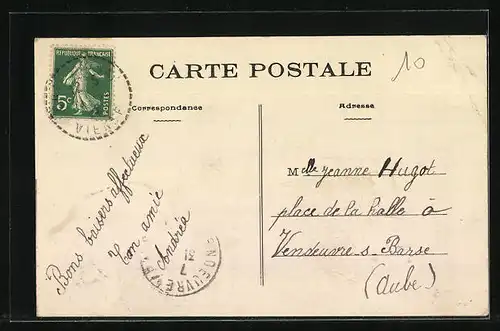 REPUBLIQUE FRANÇAISE
5c
POSTES
VIENNE
CARTE POSTALE
10
Correspondance
Adresse
Bons baisers affectueux
Ton amie
Andréa
VENDEUVRE
Melle Jeanne Hugot
place de la halle à
Vendeuvre s Barse
(Aube)